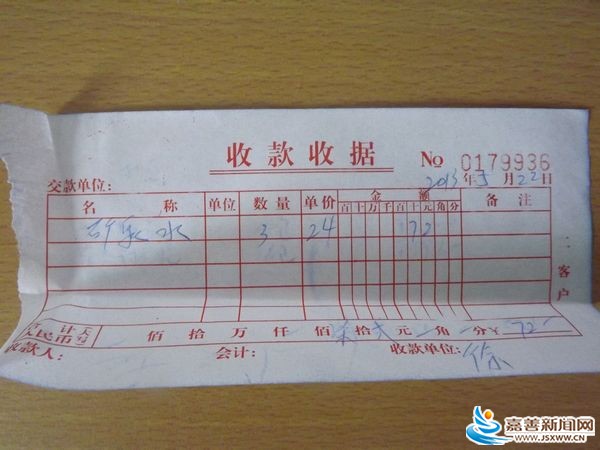 收款收据 No 0179936
交款单位: 2013年5月22日
名 称 单位 数量 单价 金额 备注
百十万千百十元角分
矿泉水 3 24 72
二客户
合计人民币 大写 佰拾万仟佰柒拾贰元角分¥ 72
收款人: 会计: 收款单位: 徐
嘉善新闻网
WWW.JSXWW.CN